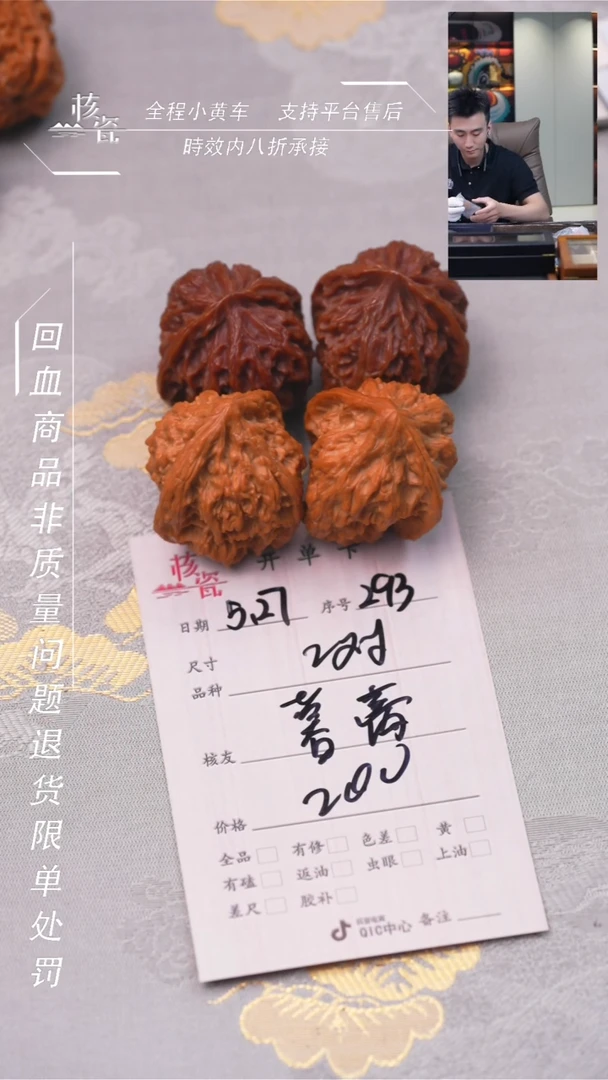 核瓷
全程小黄车 支持平台售后
時效内八折承接
回血商品非质量问题退货限单处罚
核瓷 开单卡
日期 5.27 序号 293
尺寸 2对
品种
核友
价格 200
全品 有修 色差 黄
有磕 返油 虫眼 上油
差尺 胶补
抖音电商 QIC中心 备注